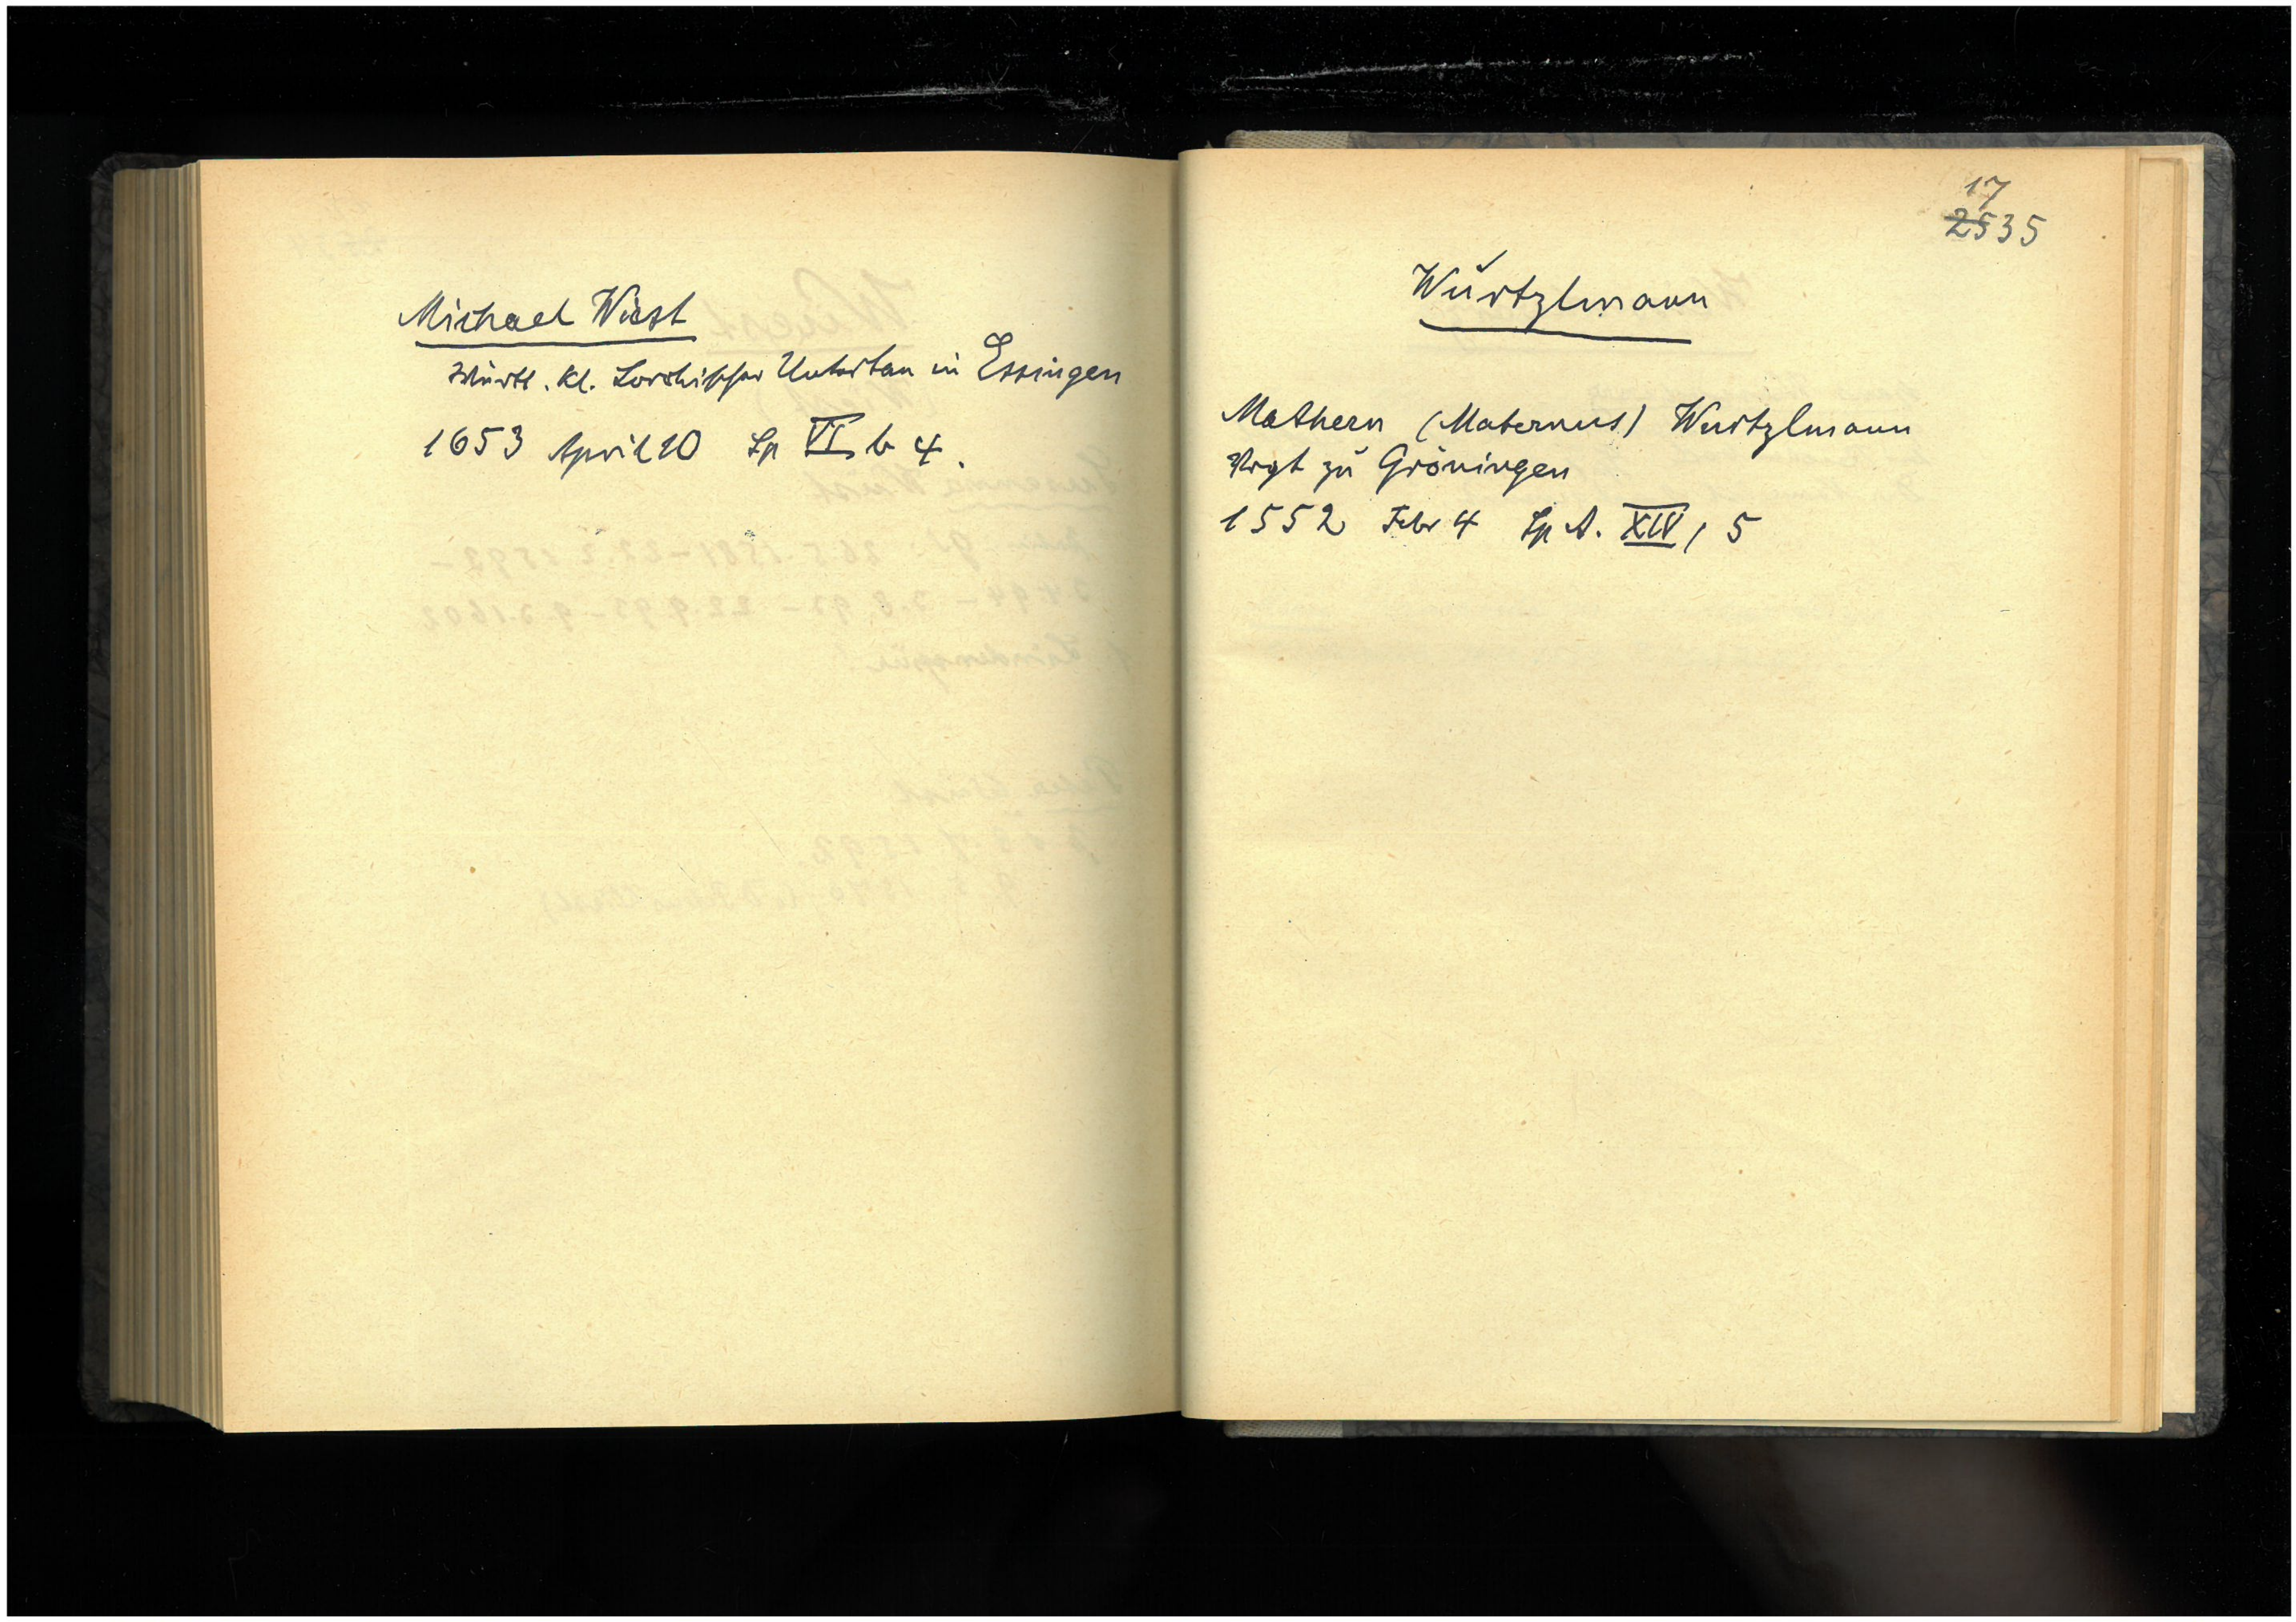 Michael Wüst
Württ. Kl. Lorchischer Untertan in Essingen
1653 April 10 Sp VI b 4.
17
2535
Wurtzlmann
Mathern (Maternus) Wurtzlmann
Vogt zu Gröningen
1552 Febr 4 Sp A. XIV, 5